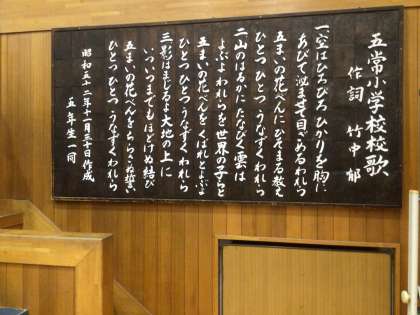 五常小学校校歌
作詞 竹中郁
一、空はひろびろ ひかりを胸に
あびて泳ませて 目にあるわれら
五まいの花べんに ひそまる教え
ひとつひとつ うなずくわれら
二、山のはるかに たなびく雲は
よぶよわれらを 世界の子らと
五まいの花べんを くばれとよぶよ
ひとつひとつ うなずくわれら
三、影はまじるよ 大地の上に
いついつまでも ほどけぬ結び
五まいの花べんを ちらさぬ誓い
ひとつひとつ うなずくわれら
昭和五十二年十一月三十日作成
五年生一同